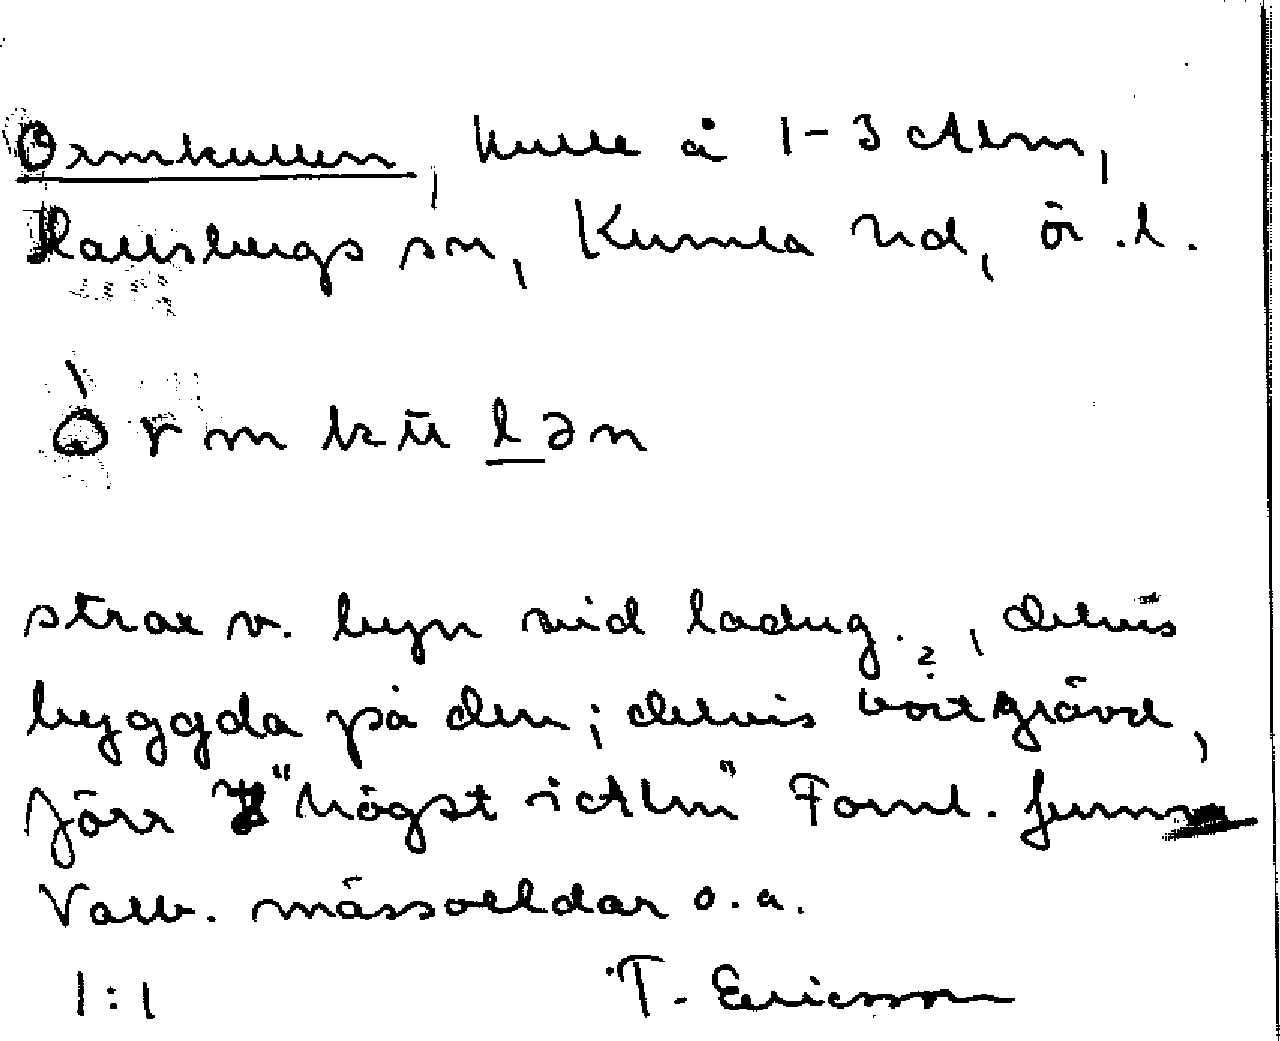 Ormkullen, kulle å 1-3 Alm,
Hallsbergs sn, Kumla hd, ör.l.
Òrmkūlən
strax v. byn vid ladug. ?, delvis
byggda på den; delvis bortgrävd,
förr "högst i Alm" Forml. funns
Valb. mässoeldar o.a.
1:1 T. Ericsson